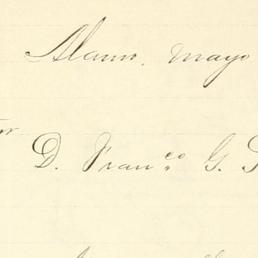 Alamo, Mayo
or
D. Fran.co G.